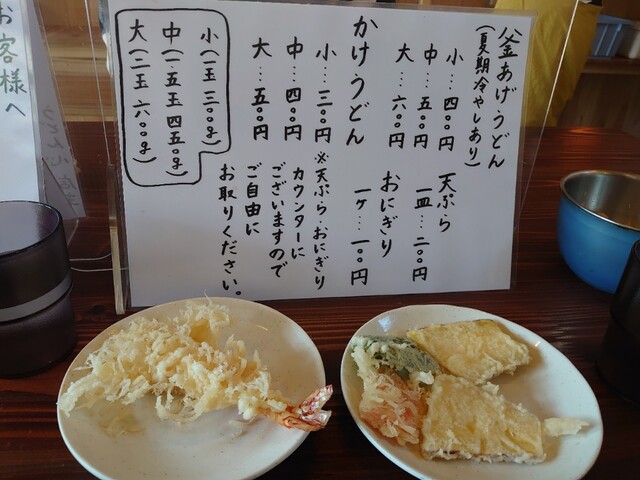 釜あげうどん
(夏期冷やしあり)
小…四〇〇円
中…五〇〇円
大…六〇〇円
かけうどん
小…三〇〇円
中…四〇〇円
大…五〇〇円
小(一玉 三〇〇g)
中(一五玉 四五〇g)
大(二玉 六〇〇g)
天ぷら
一皿…二〇〇円
おにぎり
一ケ…一〇〇円
※天ぷら・おにぎり
カウンターに
ございますので
ご自由に
お取りください。
お客様へ